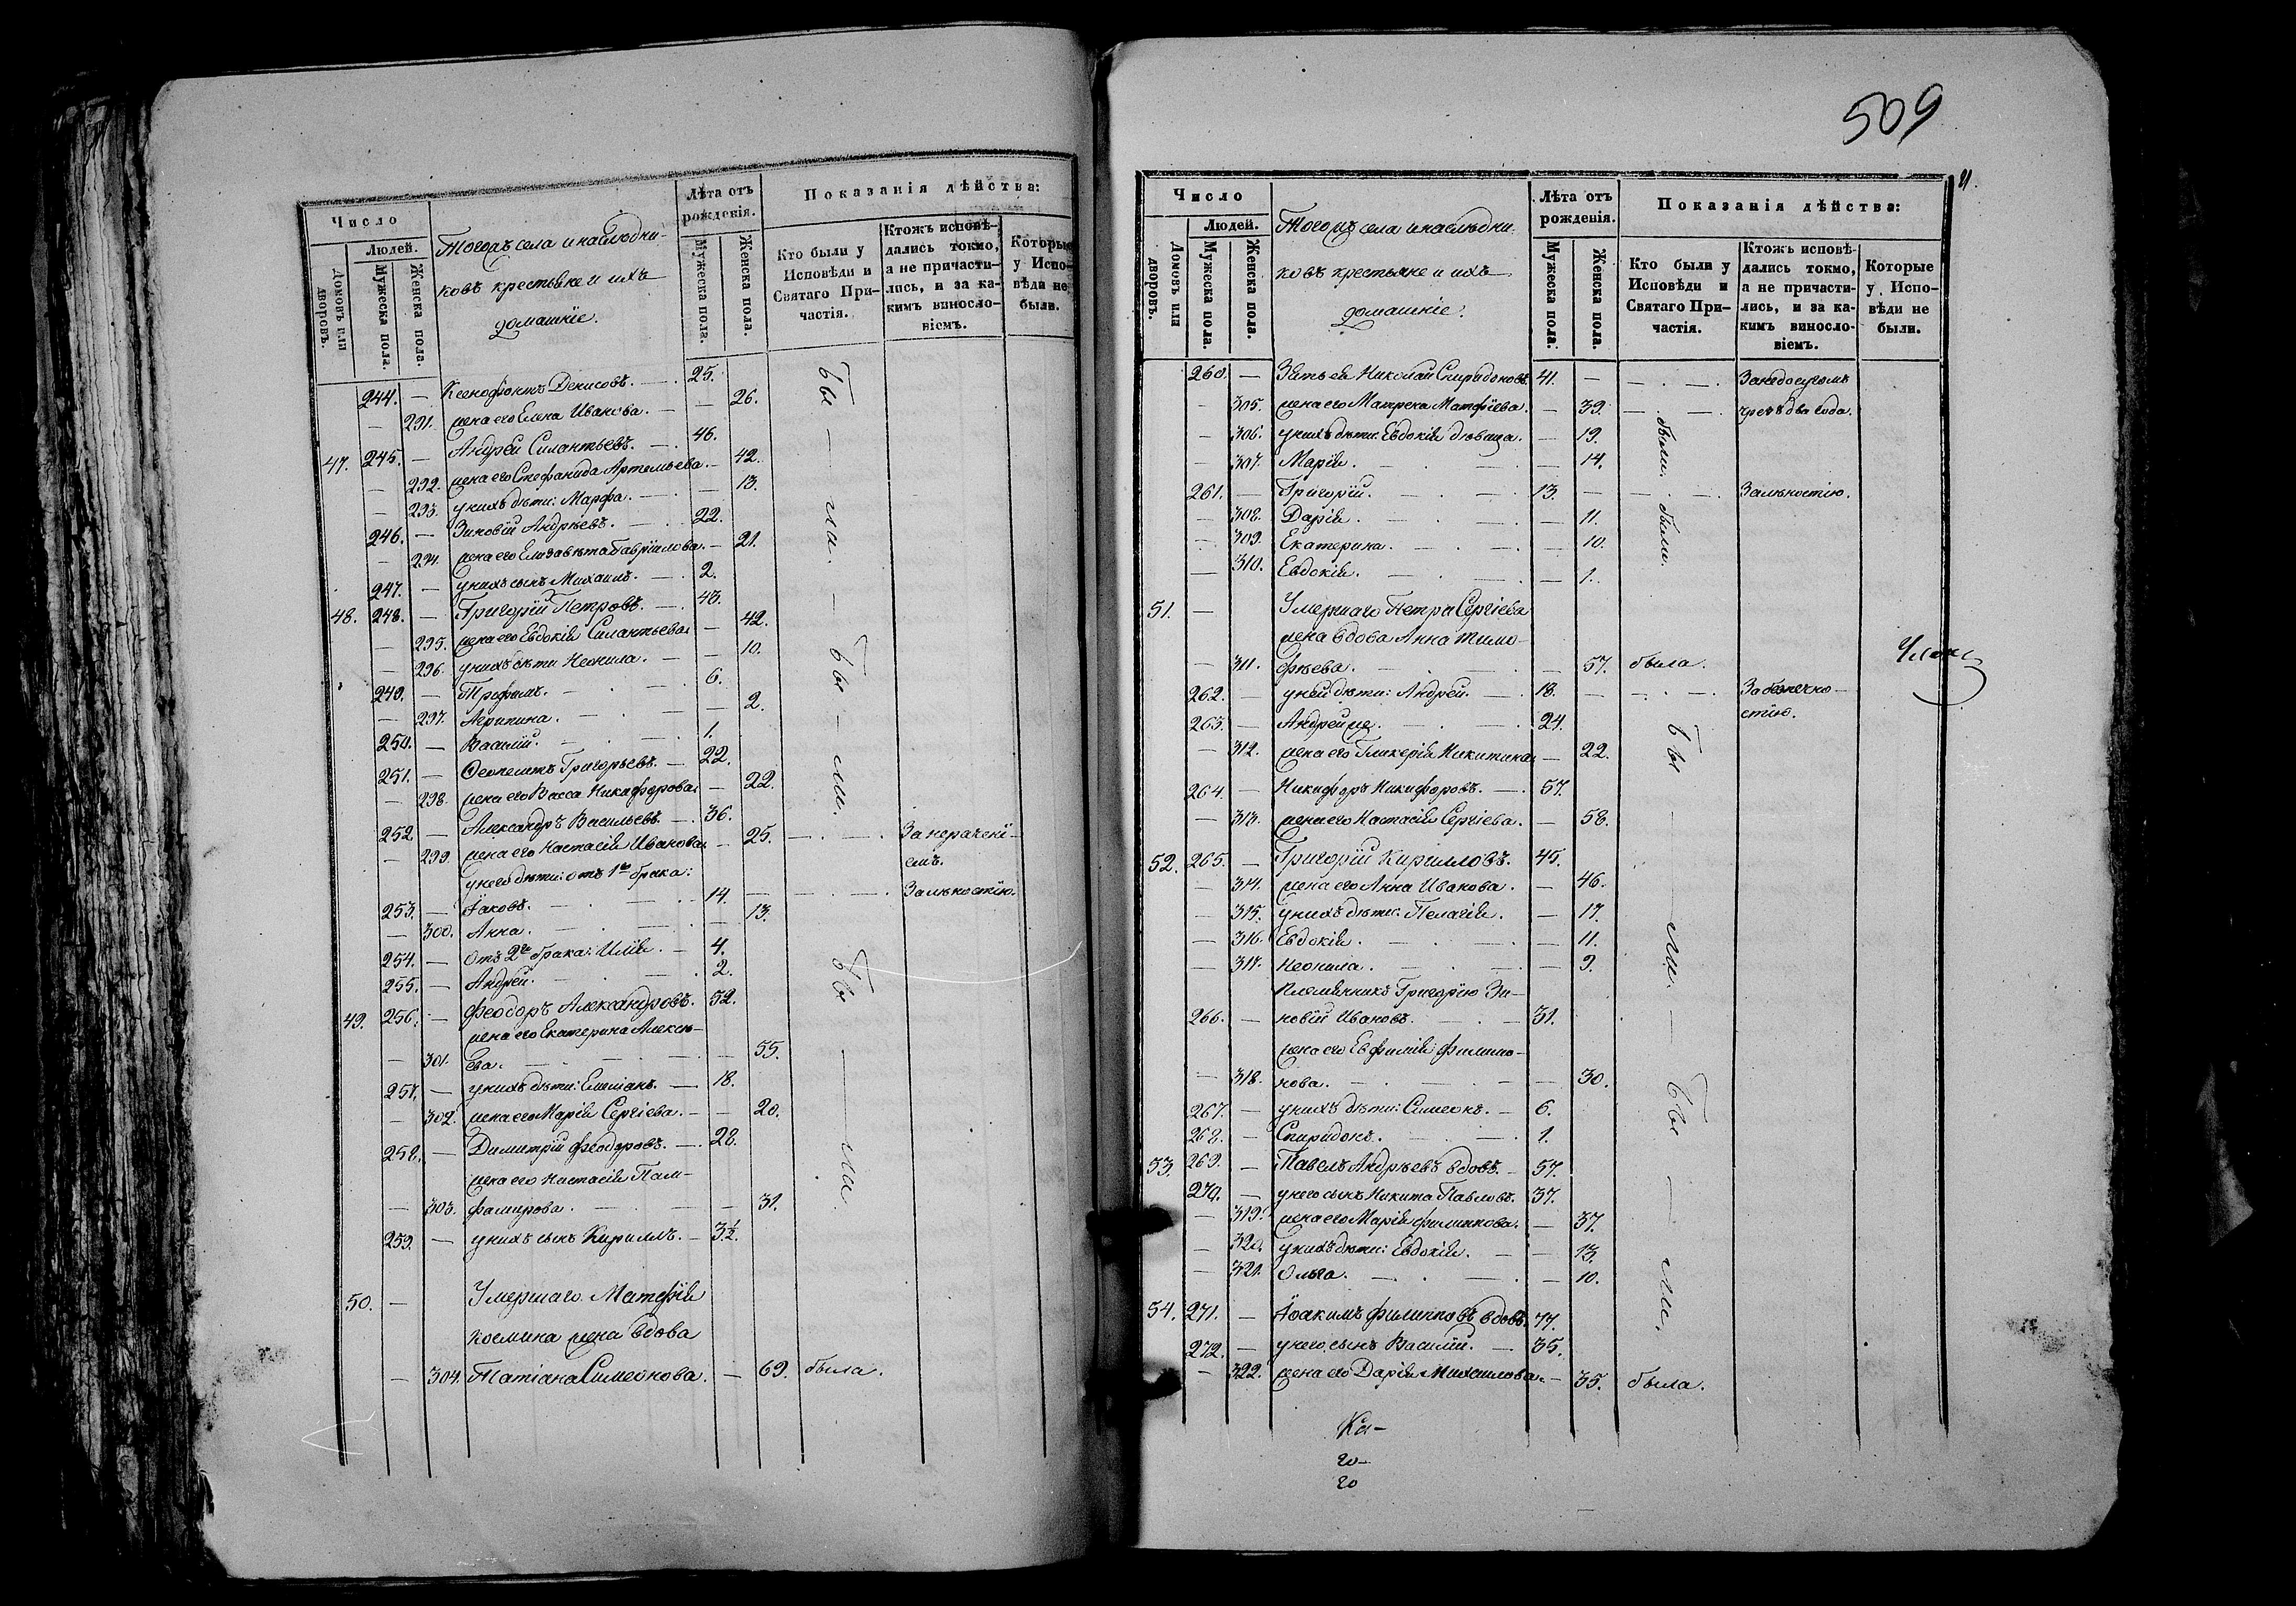 Число
Людей.
Домовъ или дворовъ.
Мужеска пола.
Женска пола.
Тогожъ села и наслѣдни-
ковъ крестьяне и ихъ
домашніе.
Лѣта отъ рожденія.
Мужеска пола.
Женска пола.
Показанія дѣйства:
Кто были у Исповѣди и Святаго Причастія.
Ктожъ исповѣдались токмо, а не причастились, и за какимъ винословіемъ.
Которые у Исповѣди не были.
244. — Ксенофонтъ Денисовъ. — 25.
— 291. жена его Елена Иванова. — — 26.
47. 245. — Андрей Силантьевъ. — 46.
— 292. жена его Стефанида Артемьева. — 42.
— 293. у нихъ дѣти: Марфа. — — 13.
246. — Зиновій Андрѣевъ. — 22.
— 294. жена его Елизавета Гавріилова. — 21.
247. — у нихъ сынъ Михаилъ. — 2.
48. 248. — Григорій Петровъ. — 43.
— 295. жена его Евдокія Силантьева — 42.
— 296. у нихъ дѣти Неонила. — — 10.
249. — Трофимъ. — 6.
— 297. Агрипина. — — 2.
250. — Василій. — 1.
251. — Феопемптъ Григорьевъ. — 22.
— 298. жена его Васса Никифорова — 22.
252. — Александръ Васильевъ. — 36.
— 299 жена его Настасія Иванова — 25. — За нерачені-
емъ.
у него дѣти: отъ 1го брака:
253. — Іаковъ. — 14. — За малѣостію.
— 300. Анна. — — 13.
254. — Отъ 2го брака: Илія. — 4.
255. — Андрей. — 2.
49. 256. — Феодоръ Александровъ. 52.
жена его Екатерина Алексѣ-
— 301. ева. — — 55.
257. — у нихъ дѣти: Емеліанъ. — 18.
— 302. жена его Марія Сергіева. — — 20.
258. — Димитрій Феодоровъ. — 28.
жена его Настасія Пам-
— 303. фамирова. — — 31.
259. — у нихъ сынъ Кириллъ. — 3½.
50. — Умершаго Матфія
Космина жена вдова
— 304. Татіана Симеонова. — 69. была.
бы — ли. — бы — ли. бы — ли.
509
Число
Людей.
Домовъ или дворовъ.
Мужеска пола.
Женска пола.
Тогожъ села и наслѣдни-
ковъ крестьяне и ихъ
домашніе.
Лѣта отъ рожденія.
Мужеска пола.
Женска пола.
Показанія дѣйства:
Кто были у Исповѣди и Святаго Причастія.
Ктожъ исповѣдались токмо, а не причастились, и за какимъ винословіемъ.
Которые у Исповѣди не были.
260. — Зять ея Николай Спиридоновъ. 41. — — За недосугомъ
— 305. жена его Матрена Матфіева. — 39. — чрезъ два года.
— 306. у нихъ дѣти: Евдокія дѣвица. — 19.
— 307. Марія. — — 14.
261. — Григорій. — 13. — — За малѣостію.
— 308. Дарія. — — 11.
— 309. Екатерина. — — 10.
— 310. Евдокія. — — 1.
были. были.
51. — Умершаго Петра Сергіева
жена вдова Анна Тимо-
— 311. фѣева. — — 57. была.
262. — у ней дѣти: Андрей. — 18. — За безпечно-
стію.
263. — Андрей же. — 24.
— 312. жена его Гликерія Никитина — 22.
264. — Никифоръ Никифоровъ. — 57.
— 313. жена его Настасія Сергіева. — 58.
52. 265. — Григорій Кирилловъ. 45.
— 314. жена его Анна Иванова. — 46.
— 315. у нихъ дѣти: Пелагія. — 17.
— 316. Евдокія. — — 11.
— 317. Неонила. — — 9.
Племянникъ Григорію Зи-
266. — новій Ивановъ. — 31.
жена его Евфимія Филимо-
— 318. нова. — — 30.
267. — у нихъ дѣти: Симеонъ. — 6.
268. — Спиридонъ. — 1.
53. 269. — Павелъ Андрѣевъ вдовъ. — 57.
270. — у него сынъ Никита Павловъ. 37.
— 319. жена его Марія Филипова. — 37.
— 320. у нихъ дѣти: Евдокія. — — 13.
— 321. Ольга. — — 10.
54. 271. — Іоакимъ Филипповъ вдовъ. 77.
272. — у него сынъ Василій. — 35.
— 322. жена его Дарія Михаилова. — 35. была.
бы — ли. — бы — ли.